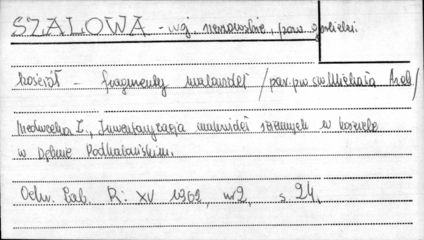 SZALOWA - woj. rzeszowskie, pow. gorlicki
kościół - fragmenty malowideł /par. pw. św. Michała Arch/
Medwecka Z., Inwentaryzacja malowideł ściennych w kościele
w Dębnie Podhalańskim.
Ochr. Zab. R: XV 1962, nr2, s. 24.